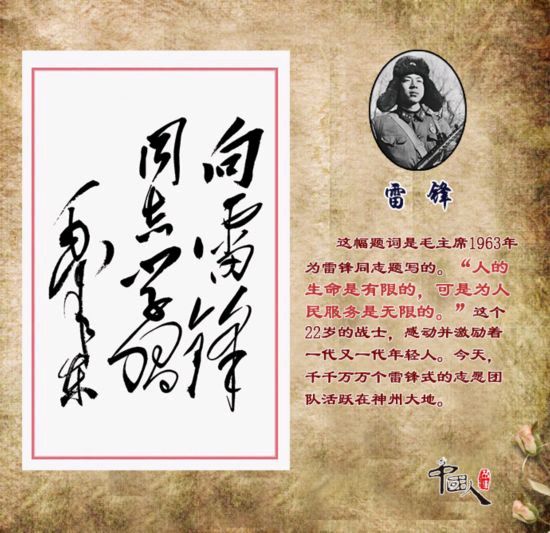 向雷锋
同志学习
毛泽东
雷锋
这幅题词是毛主席1963年
为雷锋同志题写的。“人的
生命是有限的，可是为人
民服务是无限的。”这个
22岁的战士，感动并激励着
一代又一代年轻人。今天，
千千万万个雷锋式的志愿团
队活跃在神州大地。
中国人